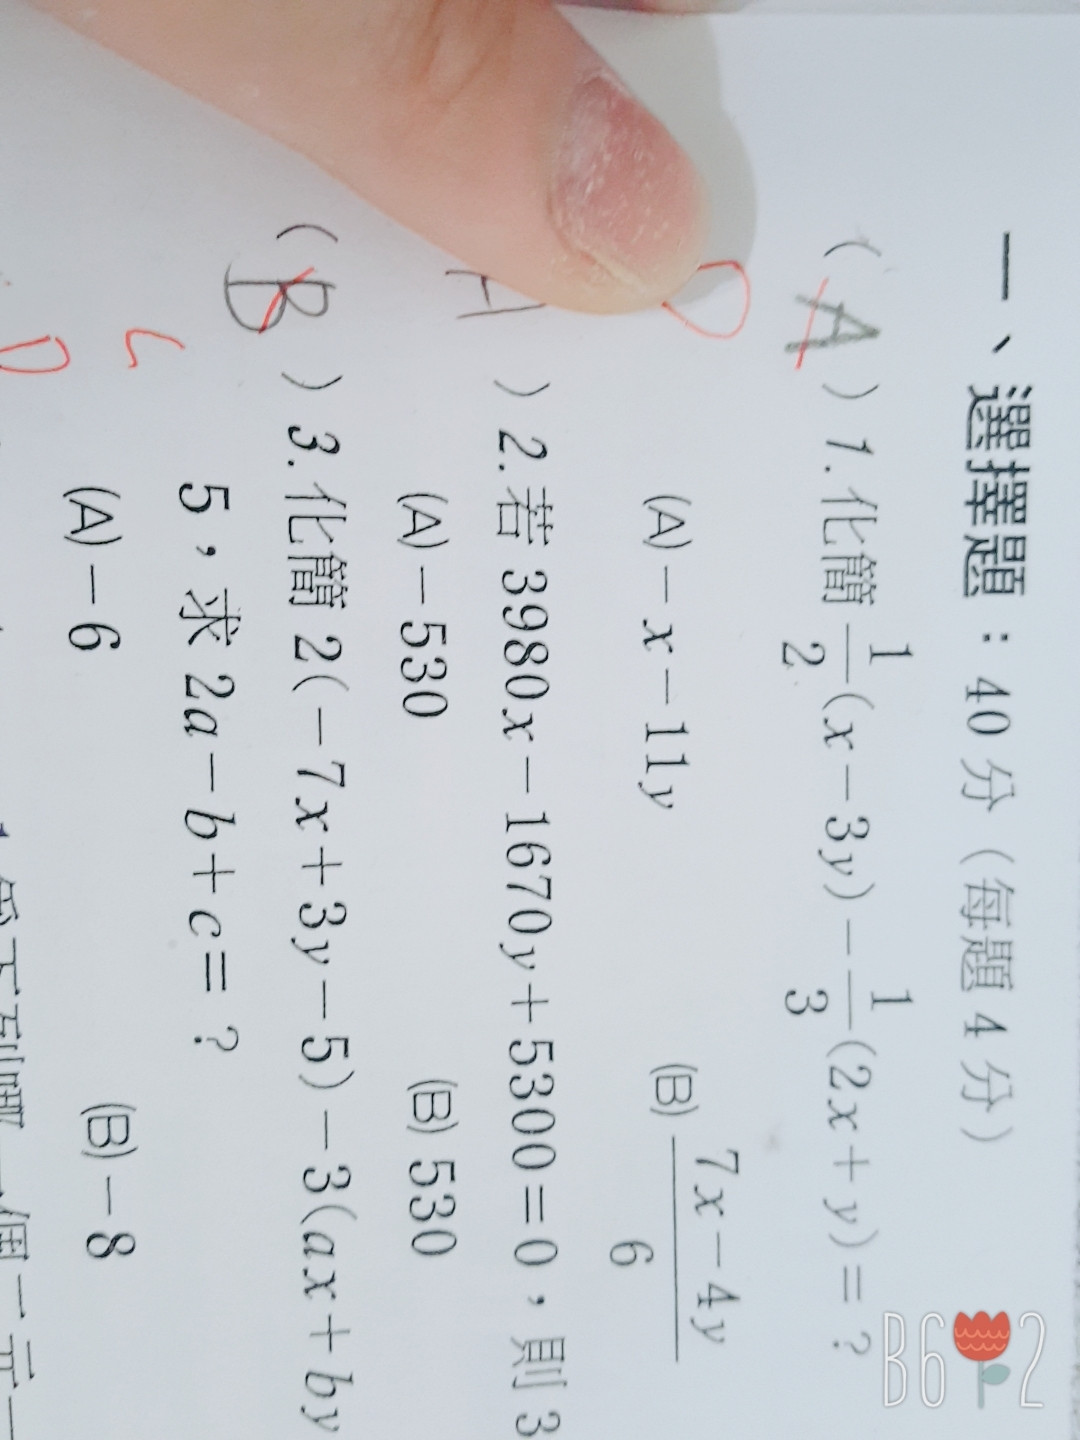 一、選擇題：40分（每題4分）
(A)1.化簡 1/2(x－3y)－1/3(2x＋y)＝？
D
(A)－x－11y (B) 7x－4y/6
A )2.若3980x－1670y＋5300＝0，則3
(A)－530 (B) 530
(B)3.化簡2(－7x＋3y－5)－3(ax＋by
5，求2a－b＋c＝？
(A)－6 (B)－8
B6 2